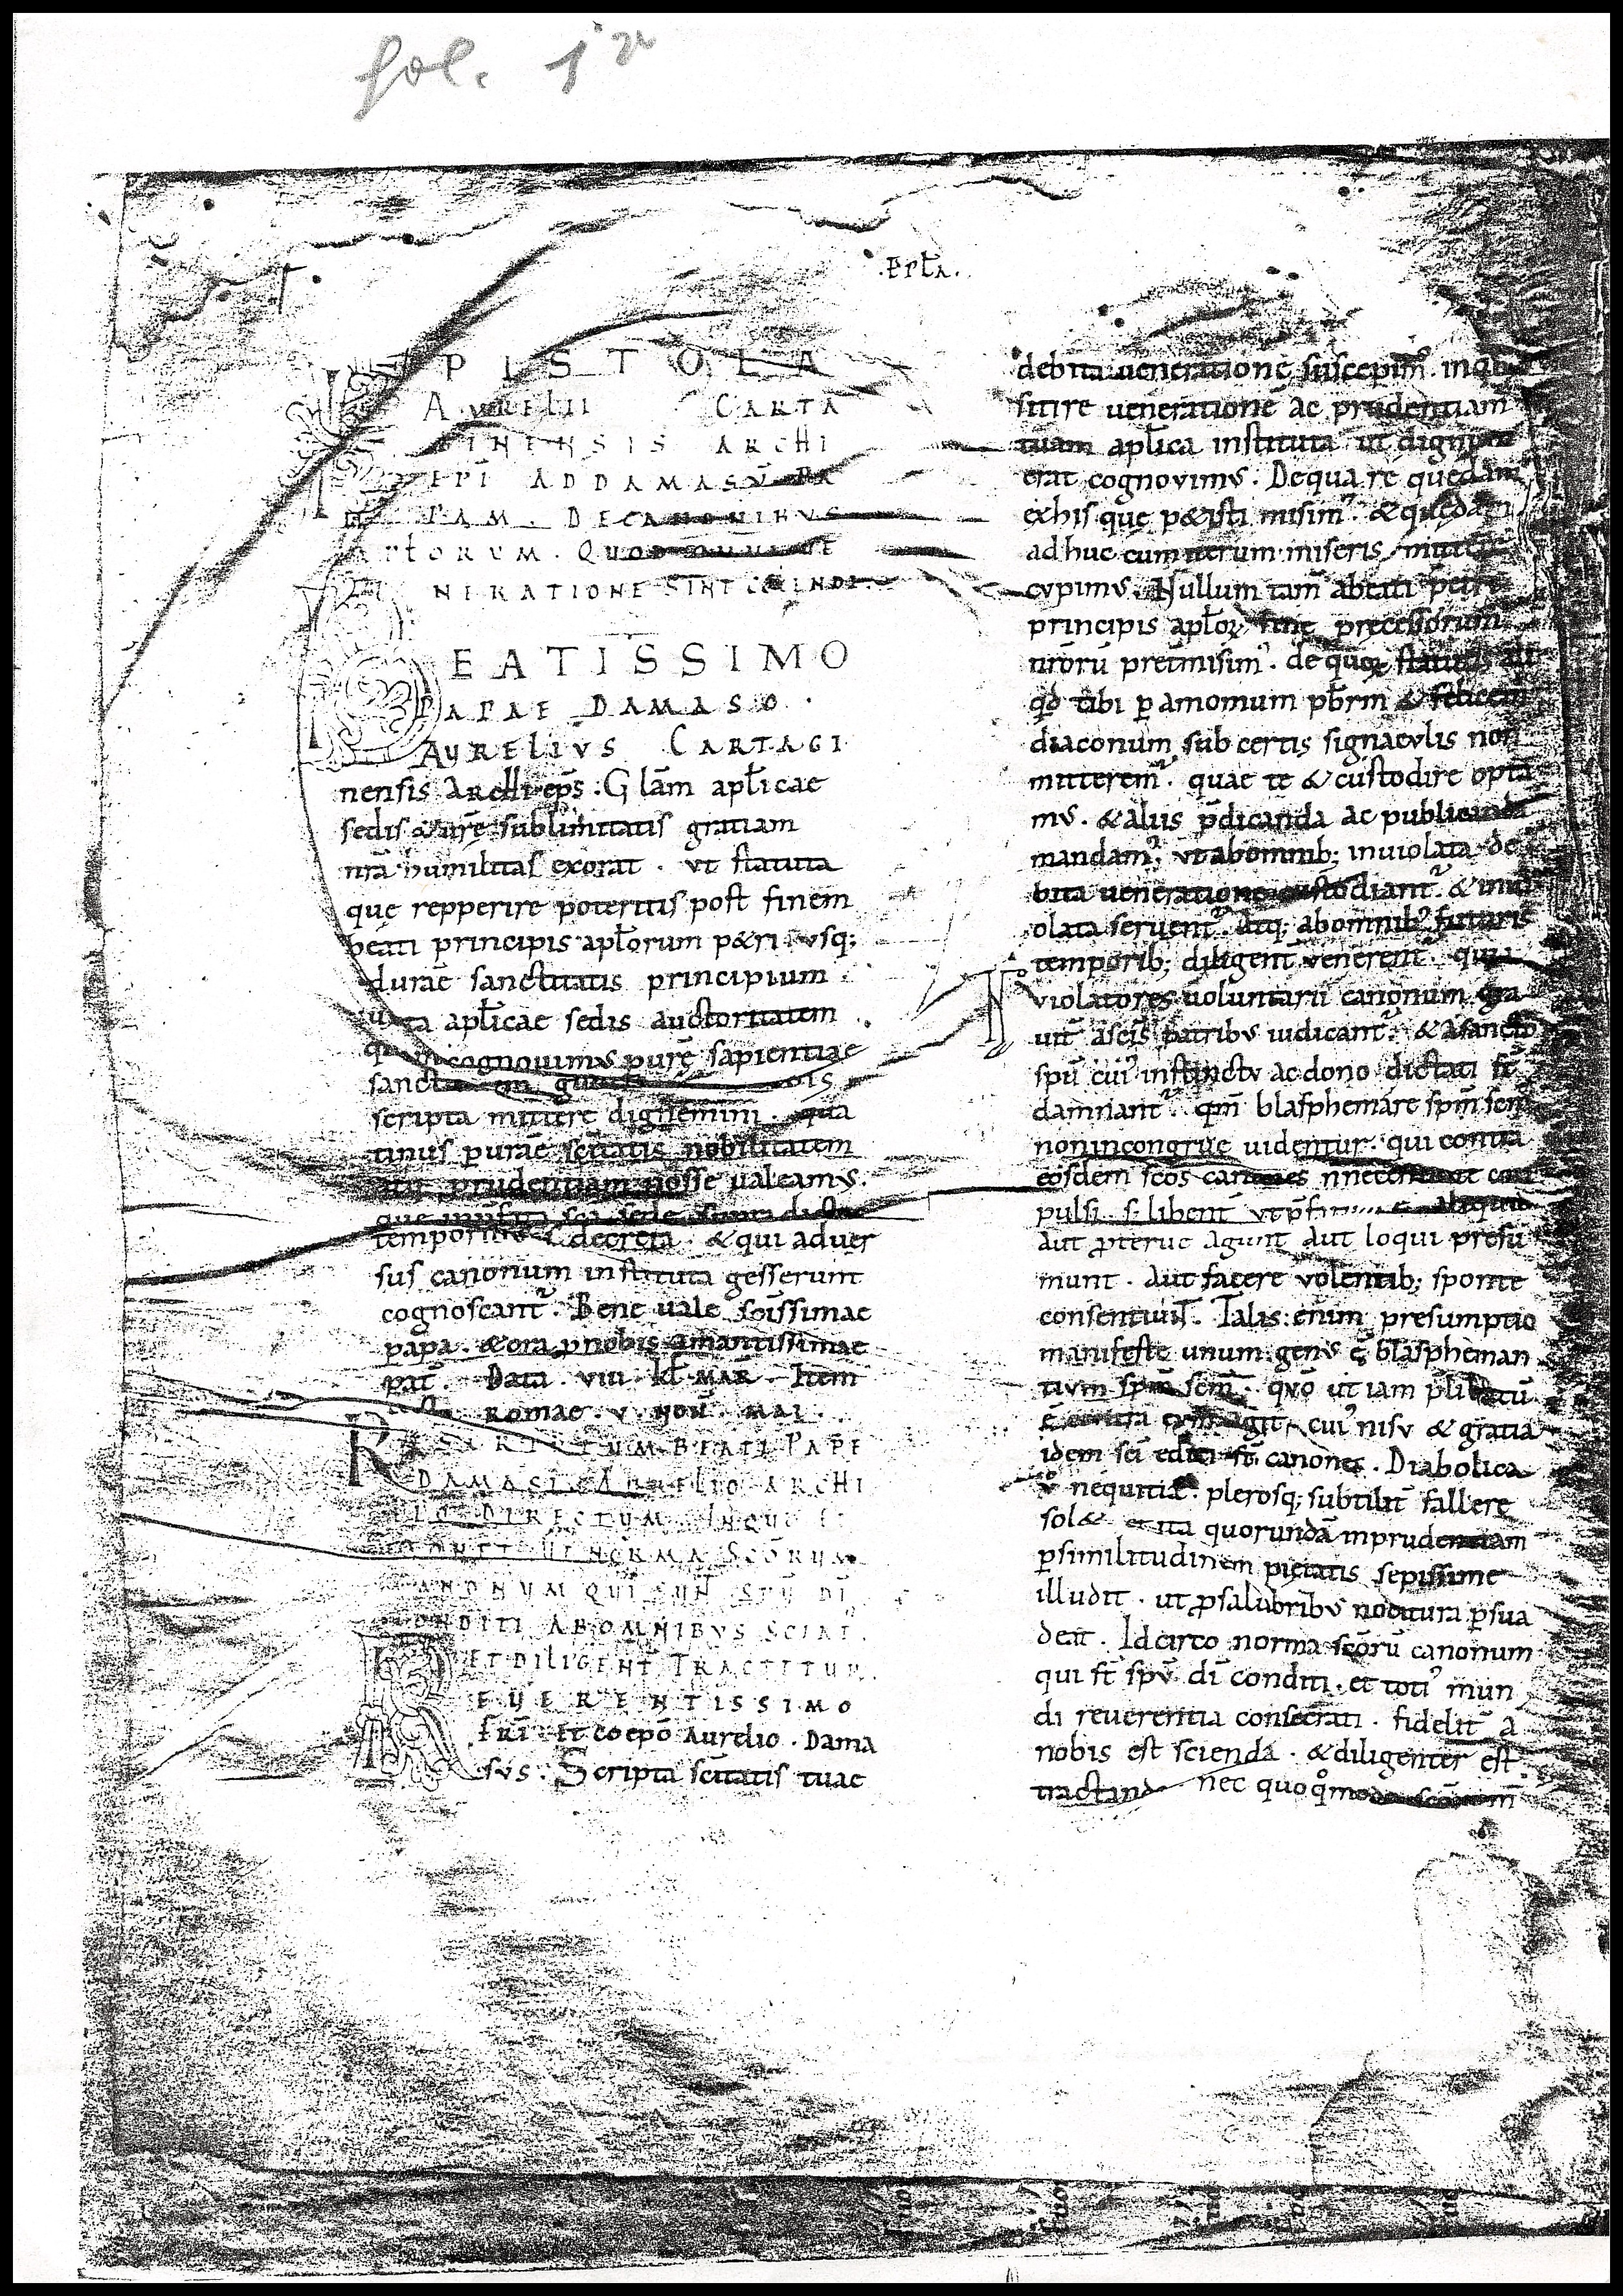 fol. 1 v
.EPLA.
EPISTOLA
AURELII CARTA
GINENSIS ARCHI
EPI AD DAMASŪ PA
PAM. DE CANONIBUS
APŁORUM. QUOD OMNI VE
NERATIONE SINT COLENDI.
BEATISSIMO
PAPAE DAMASO.
AURELIUS CARTAGI
nensis archieps̄. Glām apłicae
sedis & urē sublimitatis gratiam
nr̄a humilitas exorat. ut statuta
quę repperire poteritis post finem
beati principis apłorum p&ri usq;
durāe sanctitatis principium
apłicae sedis auctoritatem
cognouimus purę sapientiae
scripta mittere dignemini. qua
tinus p urāe sc̄itatis nobilitatem
prudentiam nosse ualeamus.
decreta. & qui aduer
sus canonum instituta gesserunt
cognoscant᷑. Bene uale sc̄issimae
papa. & ora p nobis amantissimae
pat̄. Data. viii. kł. MAR. Item
Romae. v. NON̄. MAI.
RESCRIPTUM BEATI PAPE
DAMASI AURELIO ARCHI
EPO DIRECTUM. INQUO
NORMA SCŌRUM
CANONUM QUI SUNT SPŪ DĪ
CONDITI AB OMNIBUS SCIAT.
ET DILIGENT̄ TRACTETUR.
REUERENTISSIMO
FRĪ ET coepō Aurelio. Dama
sus. Scripta sc̄itatis tuae
debita ueneratione suscepim᷒. in
sitire ueneratione ac prudentiam
tuam apłica instituta ut dignum
erat cognouimus. De qua re quędam
ex his quę p&isti misim᷒. & quędam
adhuc cum uerum miseris mittere
cupimus. Nullum tam̄ a beati petri
principis apłoꝝ fine precessorum
nr̄orū pret̄misim᷒. de quoꝝ statutis
qd̄ tibi p amomum pbr̄m & felicem
diaconum sub certis signaculis non
mitterem᷒. quae te & custodire opta
mus. & aliis p̄dicanda ac publicanda
mandam᷒. ut ab omnib; inuiolata de
bita ueneratione custodiant᷑. & inui
olata seruent᷑. Atq; ab omnib; futuris
temporib; diligent̄ uenerent᷑. quia
violatores uoluntarii canonum gra
uit̄ a sc̄is patribus iudicant᷑. & a sancto
spū cui᷒ instinctu ac dono dictati st̄
damnant᷑. qm̄ blasphemare spm̄ scm̄
non incongrue uidentur. qui contra
eosdem sc̄os canones n necessitate com
pulsi. s; libent̄ aliquid
aut p̄terue agunt aut loqui presu
munt. aut facere volentib; sponte
consentiunt. Talis enim presumptio
manifeste unum genus ē blasphеman
tium spm̄ scm̄. quō ut iam p̄libatū
ē contra eum agit cui᷒ nisu & gratia
idem sc̄i editi st̄ canones. Diabolica
u᷒ nequitia. plerosq; subtilit̄ fallere
sol&. et ita quorundā inprudentiam
p similitudinem pietatis sepissime
illudit. ut p salubribus nocitura p sua
deat. Idcirco norma sc̄orū canonum
qui st̄ spū dī conditi. et toti᷒ mun
di reuerentia consecrati. fidelit̄ a
nobis est scienda. & diligenter est
tractanda nec quoq̊modo